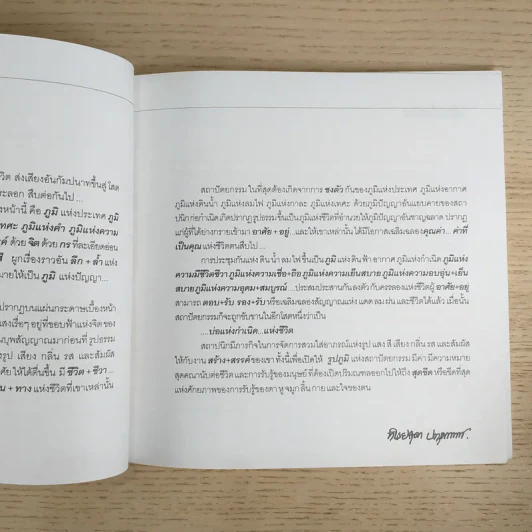 วิต ส่งเสียงอันกัมปนาทขึ้นสู่ โสต
ระลอก สืบต่อกันไป ...
งหน้านี้ คือ ภูมิ แห่งประเทศ ภูมิ
เทศะ ภูมิแห่งค่ำ ภูมิแห่งความ
ค์ ด้วย จิต ด้วย กร ที่ละเอียดอ่อน
ผูกเรื่องราวอัน ลึก + ล้ำ แห่ง
มายให้เป็น ภูมิ แห่งปัญญา...
ปรากฏบนแผ่นกระดาษเบื้องหน้า
แสงเรื่อๆ อยู่ที่ขอบฟ้าแห่งจิต ของ
นุพสัญญาณมาก่อนที่ รูปธรรม
รูป เสียง กลิ่น รส และสัมผัส
ศัย ให้ได้ตื่นขึ้น มี ชีวิต + ชีวา...
น + ทาง แห่งชีวิตที่เขาเหล่านั้น
สถาปัตยกรรม ในที่สุดต้องเกิดจากการ ชงตัว กันของภูมิแห่งประเทศ ภูมิแห่งอากาศ
ภูมิแห่งดินน้ำ ภูมิแห่งลมไฟ ภูมิแห่งกาละ ภูมิแห่งเทศะ ด้วยภูมิปัญญาอันแยบคายของสถา
ปนิก ก่อกำเนิด เกิดปรากฏรูปธรรมขึ้นเป็นภูมิแห่งชีวิตที่อำนวยให้ภูมิปัญญาอันชาญฉลาด ปรากฏ
แก่ผู้ที่ได้ย่างกรายเข้ามา อาศัย + อยู่... และให้เขาเหล่านั้น ได้มีโอกาสเฉลิมฉลองคุณค่า... ค่าที่
เป็นคุณ แห่งชีวิตตนสืบไป ...
การประชุมกันแห่ง ดิน น้ำ ลม ไฟ ขึ้นเป็นภูมิ แห่ง ดิน ฟ้า อากาศ ภูมิแห่งกำเนิด ภูมิแห่ง
ความมีชีวิตชีวา ภูมิแห่งความเชื่อ+ถือ ภูมิแห่งความเย็นสบาย ภูมิแห่งความอบอุ่น+เย็น
สบายภูมิแห่งความอุดม+สมบูรณ์ ...ประสมประสานกันลงตัว กับครรลองแห่งชีวิตผู้ อาศัย+อยู่
สามารถ ตอบ+รับ รอง+รับ หรือเฉลิมฉลองสัญญาณแห่ง แดด ลม ฝน และชีวิตได้แล้ว เมื่อนั้น
สถาปัตยกรรมก็จะถูกขับขานในอีกโสตหนึ่งว่าเป็น
....บ่อแห่งกำเนิด...แห่งชีวิต
สถาปนิกมีภารกิจในการจัดการสวมใส่อาภรณ์แห่งรูป แสง สี เสียง กลิ่น รส และสัมผัส
ให้กับงาน สร้าง+สรรค์ ของเขา ทั้งนี้เพื่อเปิดให้ รูปภูมิ แห่งสถาปัตยกรรม มีค่า มีความหมาย
สุดคณานับต่อชีวิต และการรับรู้ของมนุษย์ ที่ต้องเปิดปริมณฑลออกไปให้ถึง สุดขีด หรือขีดที่สุด
แห่งศักยภาพของการรับรู้ของตา หู จมูก ลิ้น กาย และใจของตน